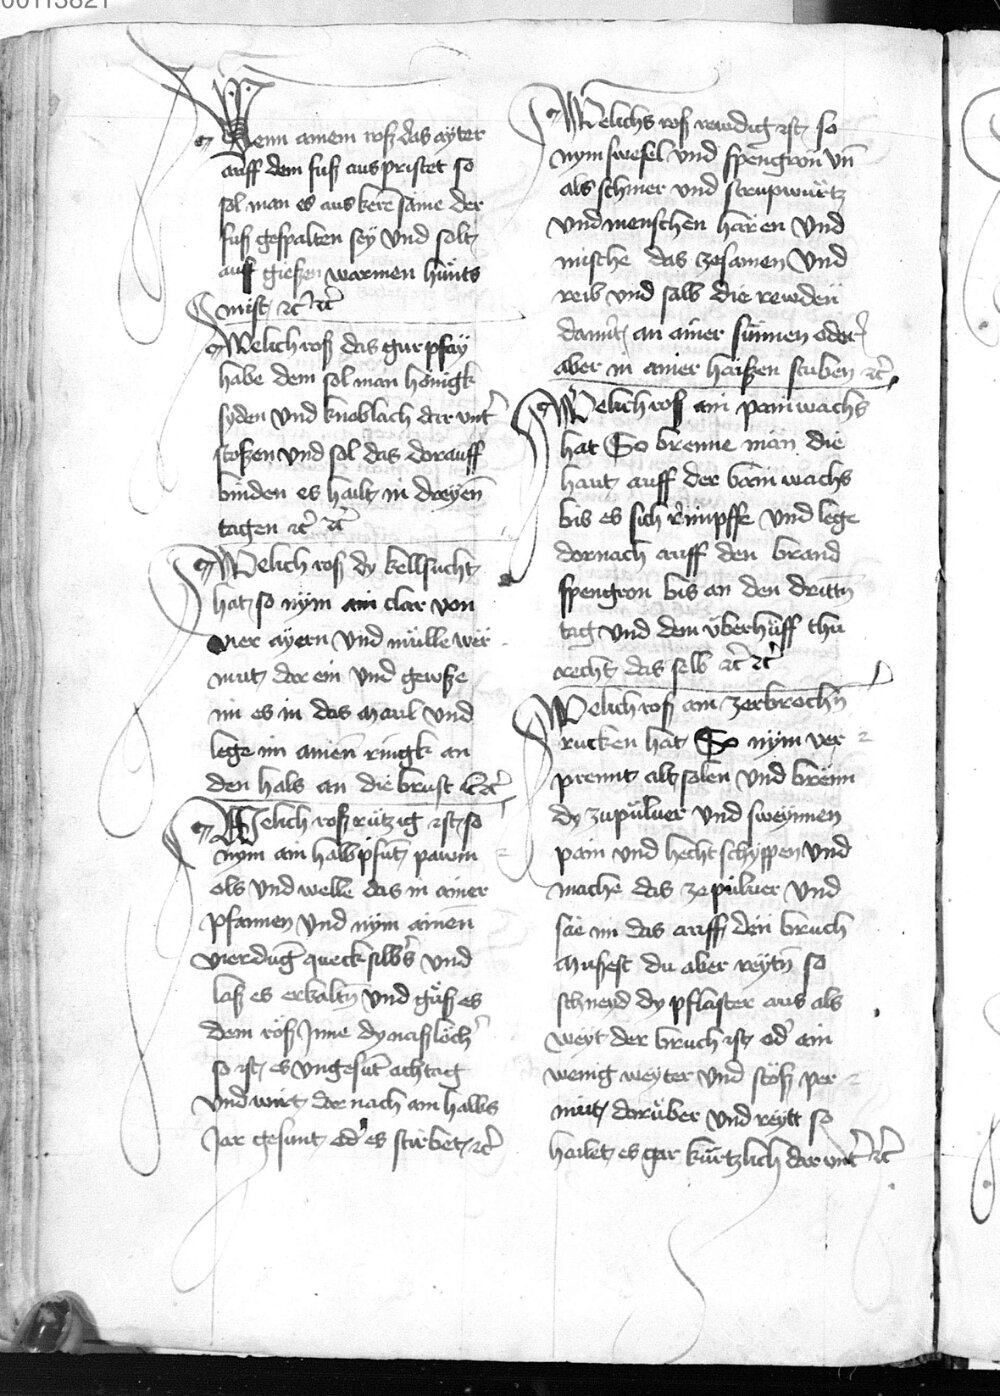 00113821
Wenn ainem roß das ayter
auff dem fuß auspristet so
sol man es aus kere same der
fuß gespalten sey vnd solt
auff gießen warmen hunts
mist ꝛc ꝛc
Welich roß das gurpfay
habe dem sol man honigk
syden vnd knoblach dar vnt
stoßen vnd sol das dorauff
binden es hailt in dreyen
tagen ꝛc ꝛc
Welich roß dy kellsucht
hat so nym ain clar von
vier ayern vnd mülle wer
mut dar ein vnd gewße
im es in das maul vnd
lege im ainen ringk an
den hals an die brust ꝛc
Welich roß rützig ist so
nym ain halb pfunt pawm
öls vnd welle das in ainer
pfannen vnd nym ainen
vierdūg queck silbs vnd
laß es erkaltn vnd güß es
dem röß Inne dy naßlöch
so ist es vngesūt achtag
vnd wirt dar nach ain halbs
Jar gesunt od es stirbet ꝛc
Welichs roß rewdig ist so
nym swefel vnd spengron vn̄
als schmer vnd scrupwurtz
vnd menschen haren vnd
mische das zesamen vnd
reib vnd salb die rewden
damit an ainer sünnen oder
aber in ainer haißen stuben ꝛc
Welich roß ain painwachs
hat So brenne man die
haut auff der bain wachs
bis es sich rimpffe vnd lege
dornach auff den brand
spengron bis an den drittn
tag vnd dem überhüff thu
recht das selb ꝛc ꝛc
Welich roß ain zerbrochn
rucken hat So nym ver
prennt alt solen vnd brenn
dy zu pulver vnd sweynnen
pain vnd hecht schyppen vnd
mache das ze pulver vnd
säe im das auff den bruch
Mußest du aber reytn so
schneyd dy pflaster aus als
weyt der bruch ist od ain
wenig weyter vnd stöß per
mut darüber vnd reytt so
hailet es gar kürtzlich dar vnt ꝛc